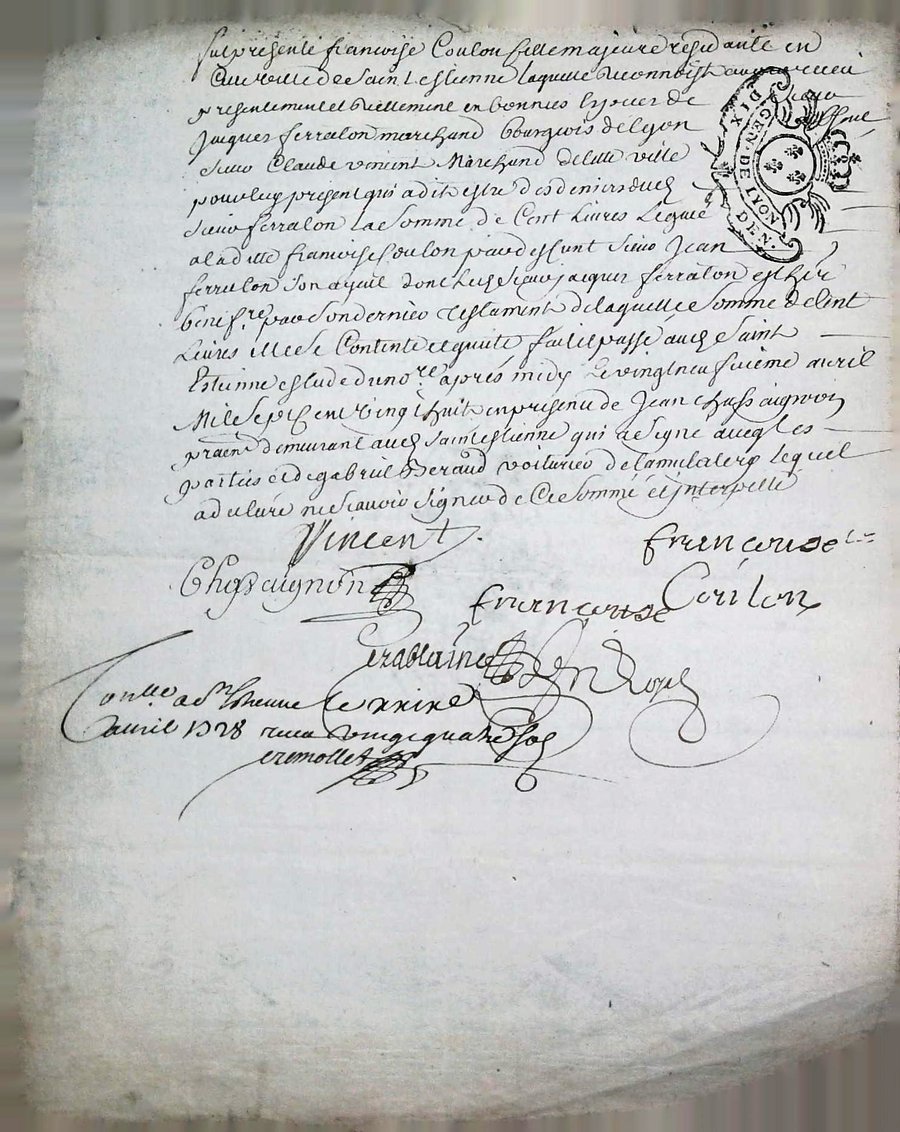 fut présente francoise Coulon fille majeure residante en
cette ville de Saint estienne laquelle Reconnoist avoir receu
presentement et Reellement en bonnes especes de sieur
Jacques ferralon marchand bourgeois de lyon
Sieur Claude vincent Marchand de cette ville
pour luy present qui a dit estre des deniers dud
Sieur ferralon La Somme de Cent Livres Leguée
a laditte francoise Coulon par deffunt Sieur Jean
ferralon Son ayeul dont led Sieur jacques ferralon est here
benef.re par son dernier testament de laquelle Somme de Cent
Livres elle Se Contente et quitte fait et passé aud Saint
Estienne estude du no.re apres midy Le vingtneufvieme avril
Mil Sept Cent vingt huit en presence de Jean Chassaignon
praen demeurant aud Saint estienne qui a Signé avec les
parties et de gabriel Beraud voiturier de la mulatere lequel
a declaré ne Scavoir Signer de Ce Sommé et Interpellé
Vincent
francoise
Chassaignon
francoise Coulon
Con.llé a St Etienne le
avril 1728 receu vingt quatre sols
DIX
GEN. DE LYON
DEN.